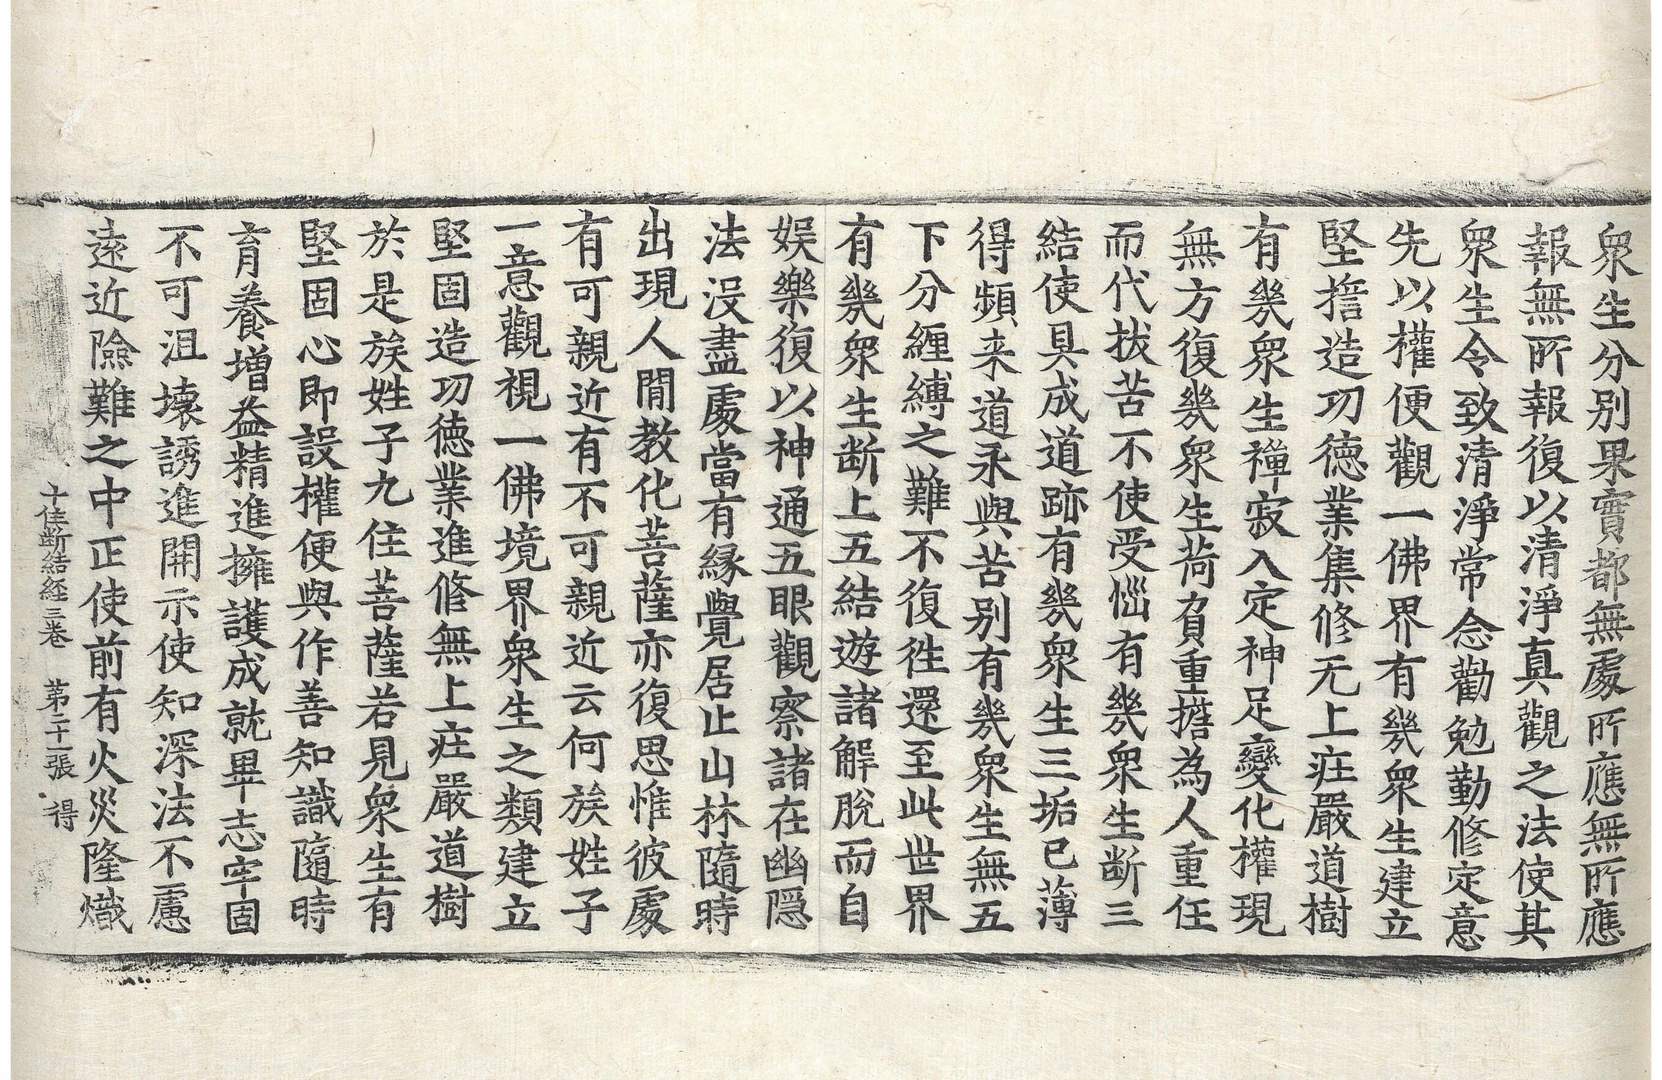 衆生分别果實都無處所應無所應
報無所報復以清淨真觀之法使其
衆生令致清淨常念勸勉勤修定意
先以權便觀一佛界有幾衆生建立
堅擔造功德業集修无上莊嚴道樹
有幾衆生禪寂入定神足變化權現
無方復幾衆生荷負重擔為人重任
而代拔苦不使受惱有幾衆生断三
結使具成道跡有幾衆生三垢已薄
得頻来道永與苦别有幾衆生無五
下分纏縛之難不復徃還至此世界
有幾衆生断上五結遊諸解脫而自
娛樂復以神通五眼觀察諸在幽隱
法没盡處當有縁覺居止山林隨時
出現人間教化菩薩亦復思惟彼處
有可親近有不可親近云何族姓子
一意觀視一佛境界衆生之類建立
堅固造功德業進修無上莊嚴道樹
於是族姓子九住菩薩若見衆生有
堅固心即設權便與作善知識隨時
育養增益精進擁護成就畢志牢固
不可沮壞誘進開示使知深法不慮
遠近險難之中正使前有火災隆熾
十住断結経三卷　第二十一張　得